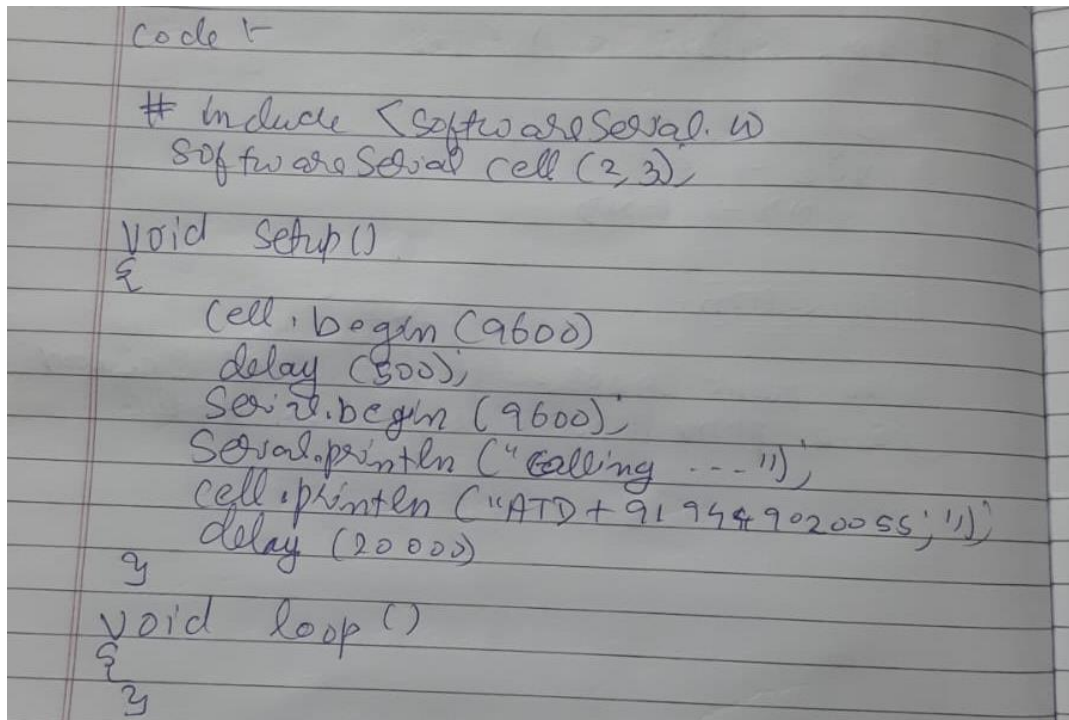 code :-
# include <SoftwareSerial.h>
SoftwareSerial cell (2,3);
void setup()
{
cell.begin (9600)
delay (500);
Serial.begin (9600);
Serial.println ("calling ---");
cell.println ("ATD+919449020055;");
delay (20000)
}
void loop ()
{
}